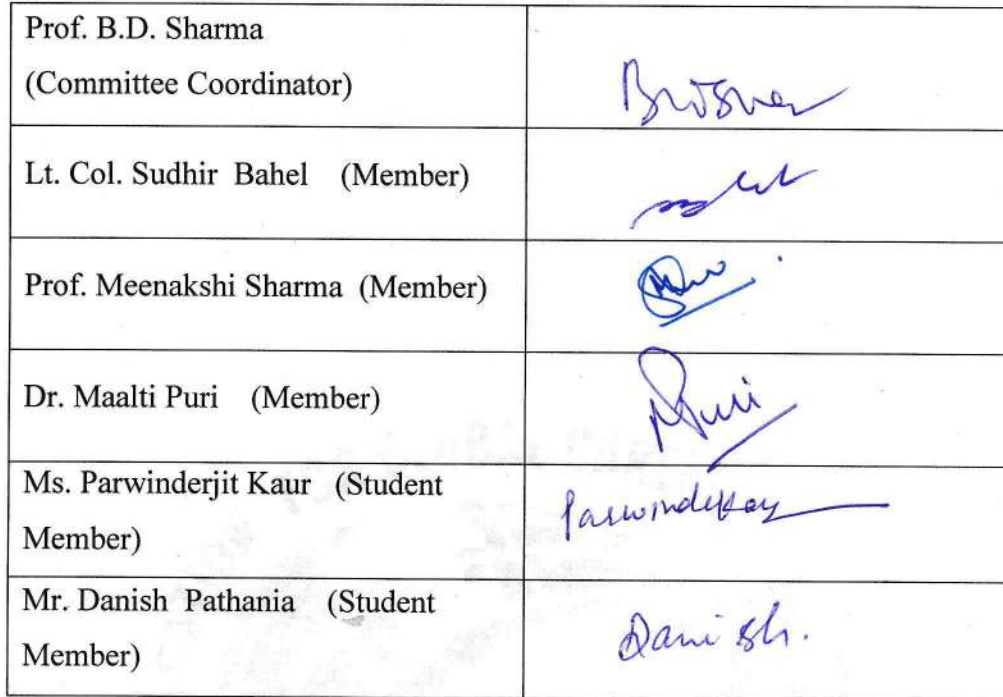 Prof. B.D. Sharma
(Committee Coordinator)
Lt. Col. Sudhir Bahel (Member)
Prof. Meenakshi Sharma (Member)
Dr. Maalti Puri (Member)
Puri
Ms. Parwinderjit Kaur (Student
Member)
Mr. Danish Pathania (Student
Member)
Danish.